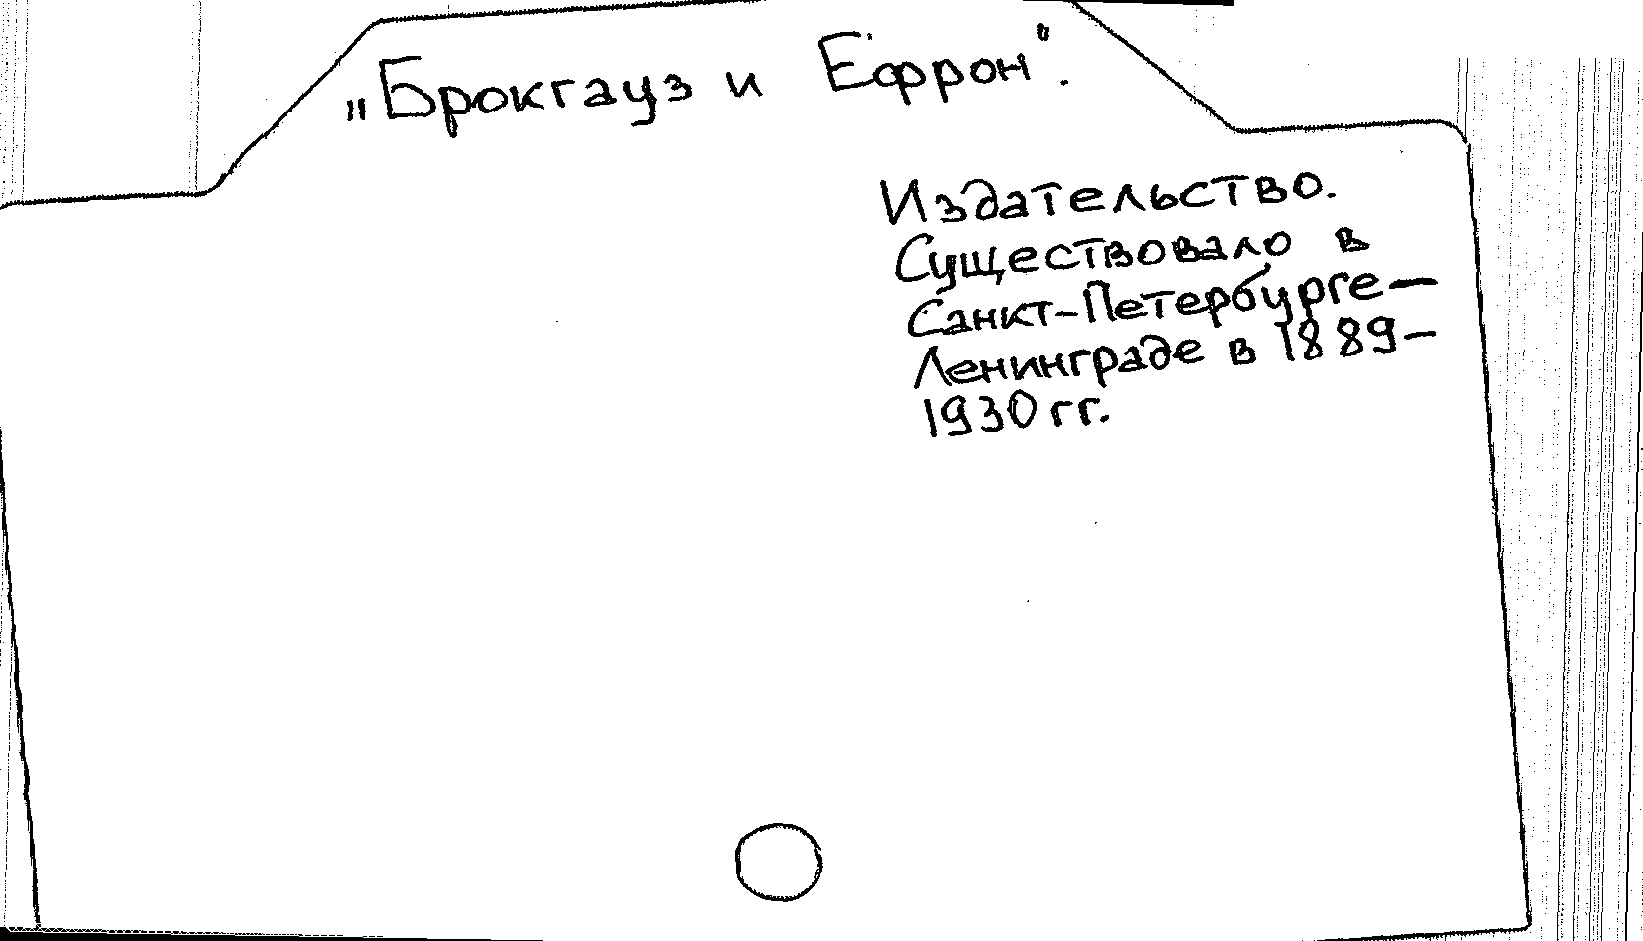 „Брокгауз и Ефрон".
Издательство.
Существовало в
Санкт-Петербурге—
Ленинграде в 1889–
1930 гг.